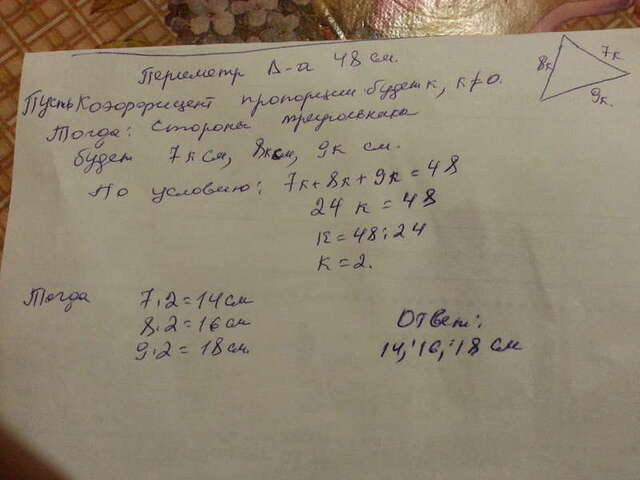 Периметр Δ-а 48 см.
8к
7к
9к.
Пусть Коэффицент пропорции будет к, к≠0.
Тогда: Стороны треугольника
будет 7к см, 8к см, 9к см.
По условию: 7к+8к+9к=48
24 к = 48
к=48:24
к=2.
Тогда 7·2=14см
8·2=16см
9·2=18см.
Ответ:
14, 16, 18 см